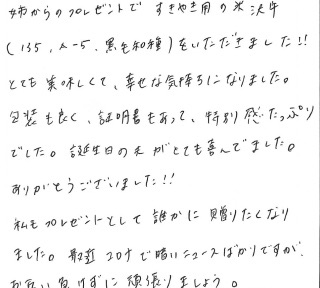 姉からのプレゼントで すきやき用の米沢牛
(135、A-5、黒毛和種)をいただきました!!
とても美味しくて、幸せな気持ちになりました。
包装も良く、証明書もあって、特別感たっぷり
でした。誕生日の夫がとても喜んでました。
ありがとうございました!!
私もプレゼントとして誰かに贈りたくなり
ました。最近コロナで暗いニュースばかりですが、
お互い負けずに頑張りましょう。